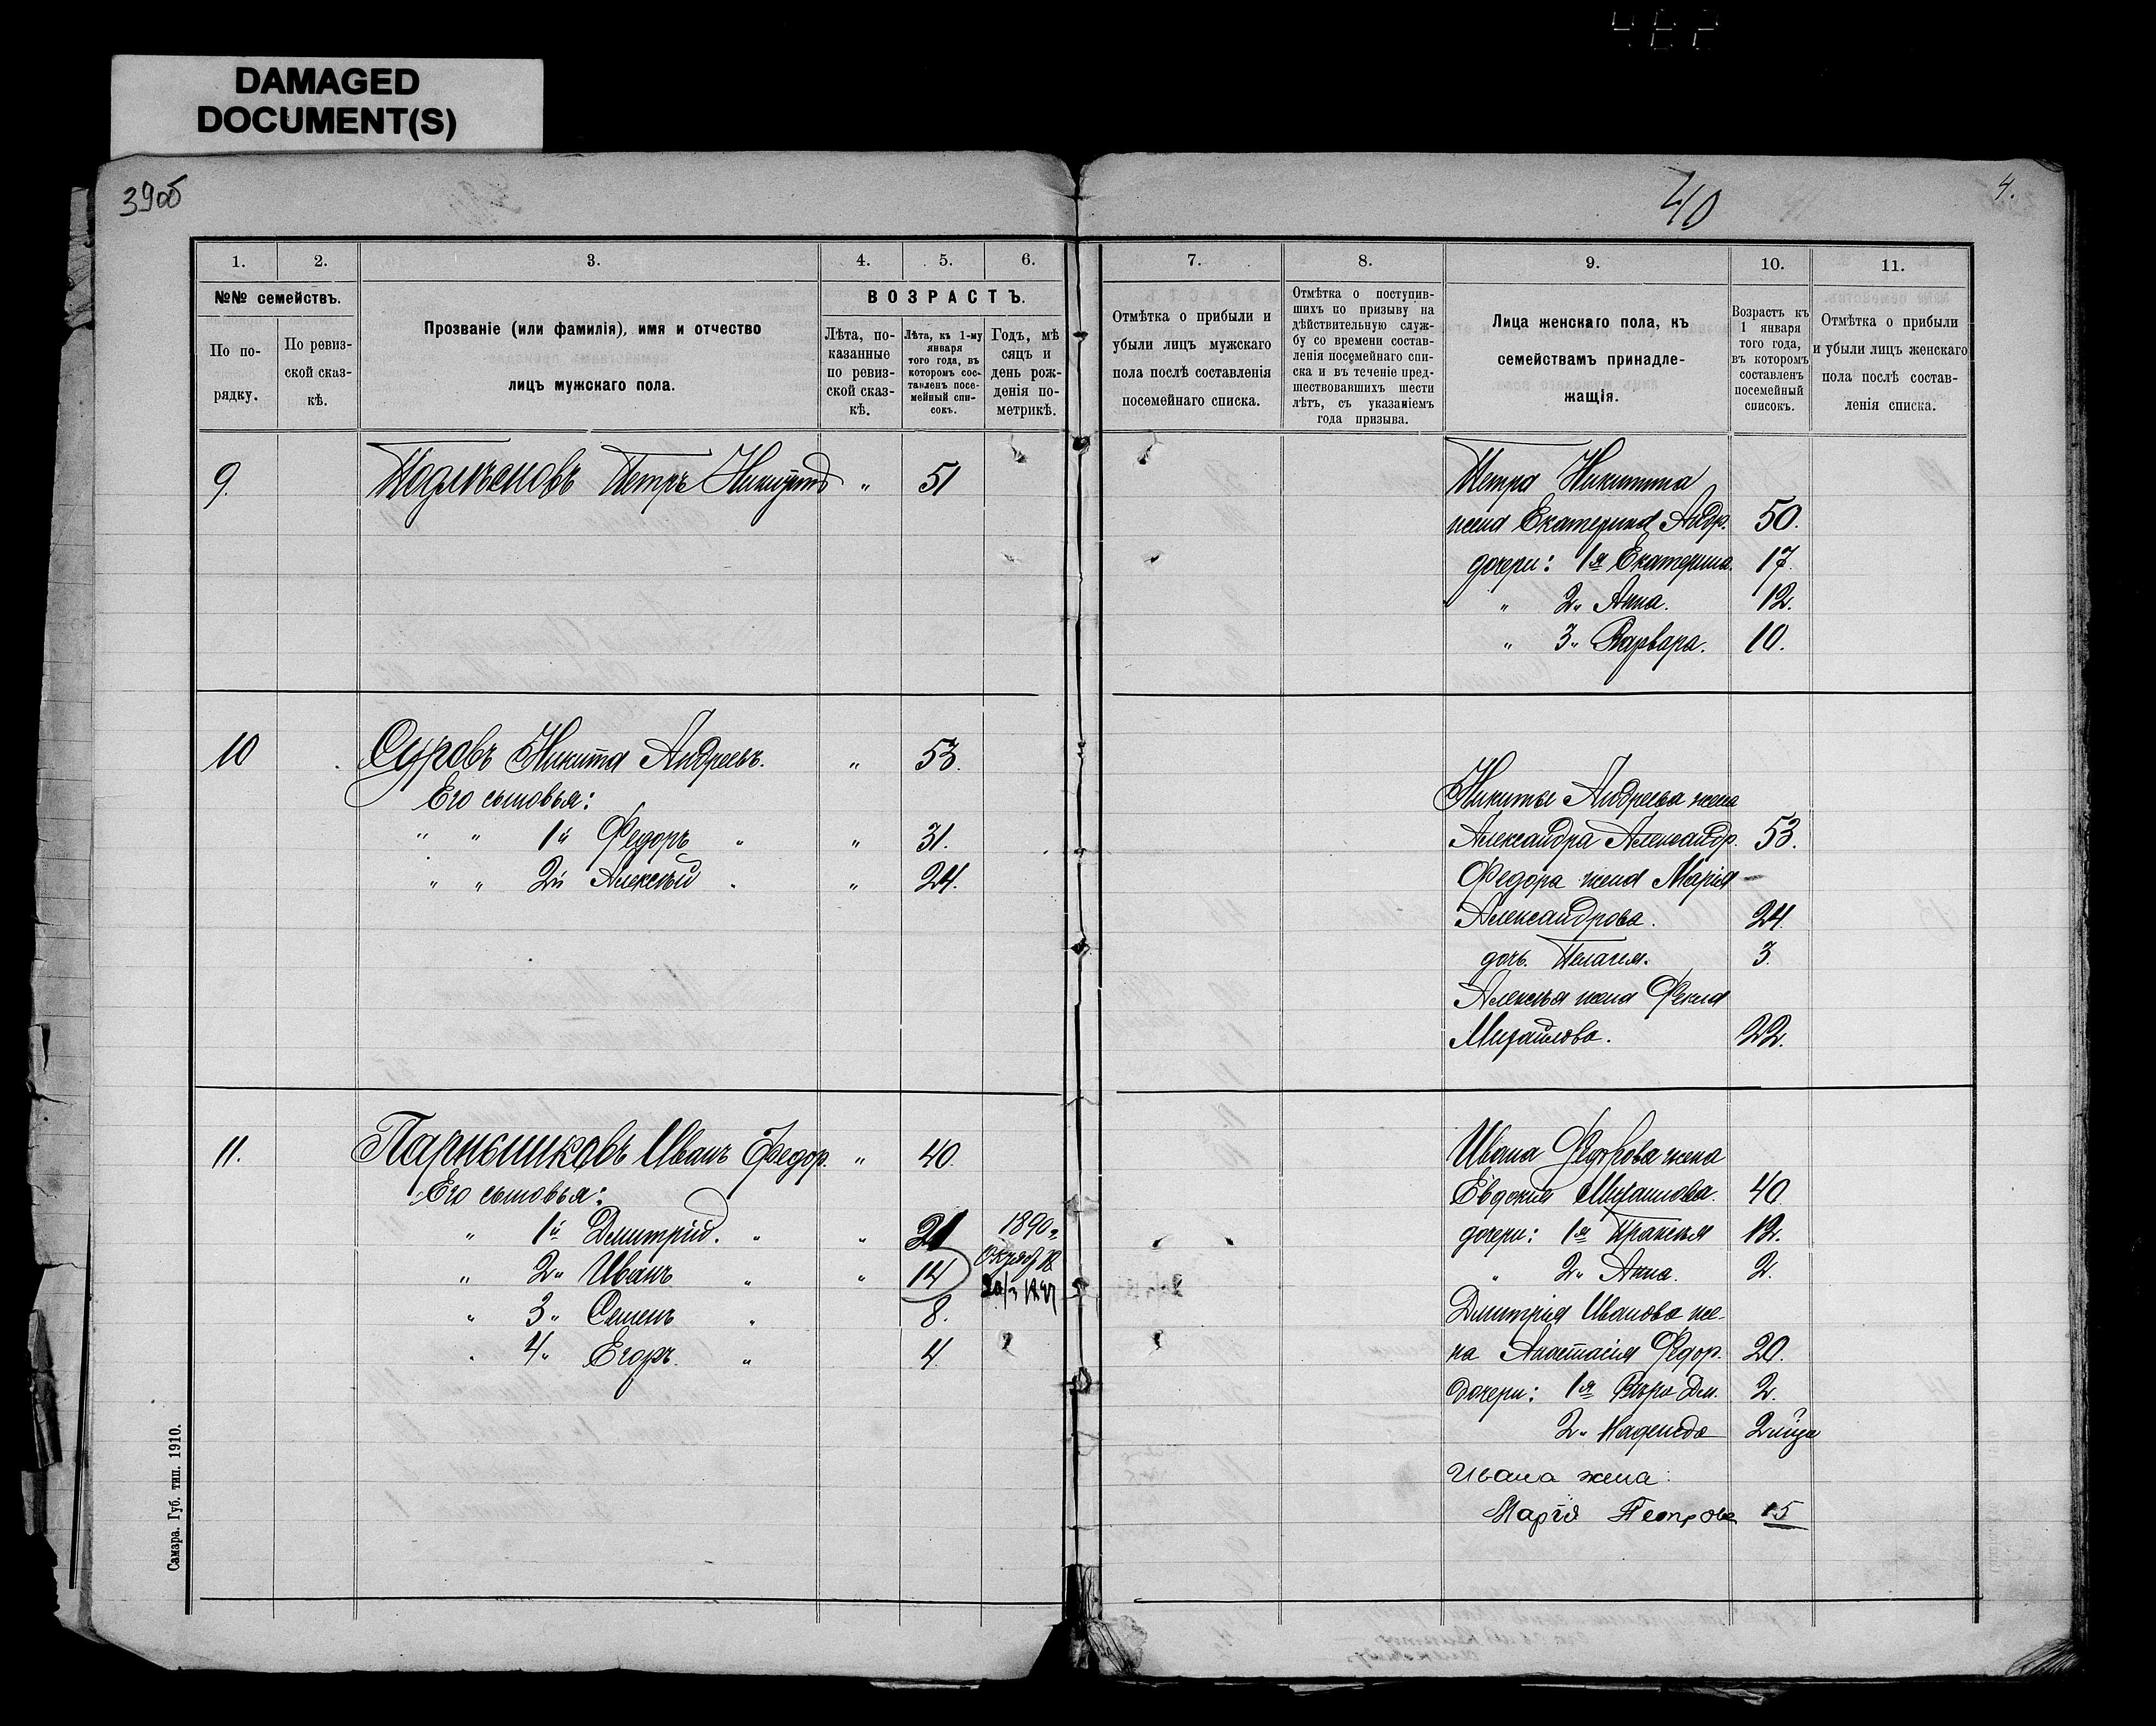 DAMAGED
DOCUMENT(S)
39об
40
4.
1.
2.
3.
4.
5.
6.
№№ семействъ.
ВОЗРАСТЪ.
По по-
рядку.
По ревиз-
ской сказ-
кѣ.
Прозваніе (или фамилія), имя и отчество
лицъ мужскаго пола.
Лѣта, по-
казанные
по ревиз-
ской сказ-
кѣ.
Лѣта, къ 1-му
января
того года, въ
которомъ сос-
тавленъ посе-
мейный спи-
сокъ.
Годъ, мѣ
сяцъ и
день рож-
денія по-
метрикѣ.
7.
8.
9.
10.
11.
Отмѣтка о прибыли и
убыли лицъ мужскаго
пола послѣ составленія
посемейнаго списка.
Отмѣтка о поступив-
шихъ по призыву на
дѣйствительную служ-
бу со времени состав-
ленія посемейнаго спи-
ска и въ теченіе пред-
шествовавшихъ шести
лѣтъ, съ указаніемъ
года призыва.
Лица женскаго пола, къ
семействамъ принадле-
жащія.
Возрастъ къ
1 января
того года,
въ которомъ
составленъ
посемейный
списокъ.
Отмѣтка о прибыли
и убыли лицъ женскаго
пола послѣ состав-
ленія списка.
9. Подлѣсновъ Петръ Никитинъ " 51
Петра Никитина
жена Екатерина Андр. 50.
дочери: 1я Екатерина. 17.
" 2" Анна. 12.
" 3" Варвара. 10.
10 Суровъ Никита Андреевъ. " 53.
Его сыновья:
" " 1й Федоръ " " 31.
" " 2й Алексѣй " " 24.
Никиты Андреева жена
Александра Александр. 53.
Федора жена Марія
Александрова. 24.
дочь Пелагея. 3.
Алексѣя жена Фекла
Михайлова. 22.
11. Парнышковъ Иванъ Федор. " 40.
Его сыновья:
" 1й Дмитрій. " " 21 1890г.
" 2" Иванъ " " 14
" 3" Семенъ " 8.
" 4" Егоръ. " 4.
Ивана Федорова жена
Евдокия Михайлова. 40
дочери: 1я Прасковья 12.
" 2" Анна. 2.
Дмитрія Иванова же-
на Анастасія Федор. 20.
Дочери: 1я Вѣра Дм. 2.
2" Надежда
Ивана жена:
Марія Петрова 15
Самара. Губ. тип. 1910.